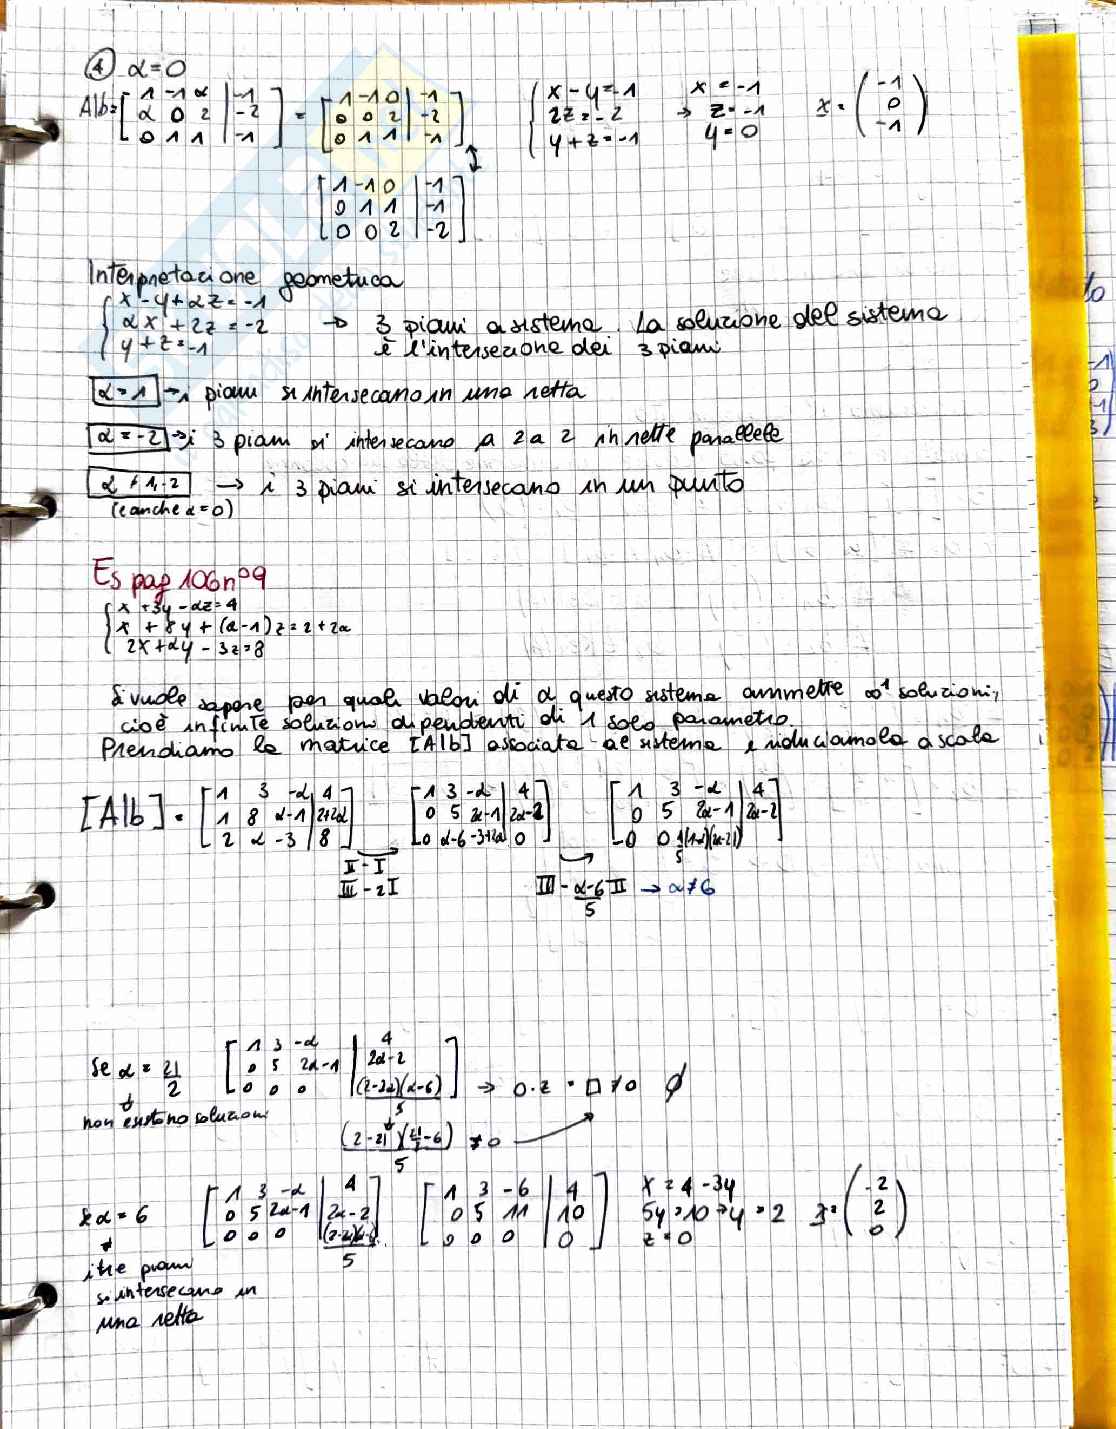 ④ α=0
A|b = [1 -1 α | -1 ; α 0 2 | -2 ; 0 1 1 | -1] = [1 -1 0 | -1 ; 0 0 2 | -2 ; 0 1 1 | -1] { x-y=-1 ; 2z=-2 ; y+z=-1 → x=-1 ; z=-1 ; y=0 x = (-1 0 -1)
[1 -1 0 | -1 ; 0 1 1 | -1 ; 0 0 2 | -2]
Interpretazione geometrica
{ x-y+αz=-1
αx+2z=-2 → 3 piani a sistema. La soluzione del sistema
y+z=-1 è l'intersezione dei 3 piani
α=1 → i piani si intersecano in una retta
α=-2 → i 3 piani si intersecano a 2 a 2 in rette parallele
α≠1,-2 → i 3 piani si intersecano in un punto
(e anche α=0)
Es pag 106 n°9
{ x+3y-αz=4
x+8y+(α-1)z=2+2α
2x+αy-3z=8
Si vuole sapere per quali valori di α questo sistema ammette ∞¹ soluzioni,
cioè infinite soluzioni dipendenti di 1 solo parametro.
Prendiamo la matrice [A|b] associata al sistema e riduciamola a scala
[A|b] = [1 3 -α | 4 ; 1 8 α-1 | 2+2α ; 2 α -3 | 8] → [1 3 -α | 4 ; 0 5 2α-1 | 2α-2 ; 0 α-6 -3+2α | 0] → [1 3 -α | 4 ; 0 5 2α-1 | 2α-2 ; 0 0
II - I
III - 2I III - α-6/5 II → α≠6
Se α = 21/2 [1 3 -α | 4 ; 0 5 2α-1 | 2α-2 ; 0 0 0 | (2-2α)(α-6)/5] → 0·z = □ ≠0 ∅
non esistono soluzioni
(2-21)(21/2-6)/5 ≠0
Se α=6 [1 3 -α | 4 ; 0 5 2α-1 | 2α-2 ; 0 0 0 | 5] [1 3 -6 | 4 ; 0 5 11 | 10 ; 0 0 0 | 0] x=4-3y ; 5y=10→y=2 ; z=0 x = (-2 2 0)
i tre piani
si intersecano in
una retta